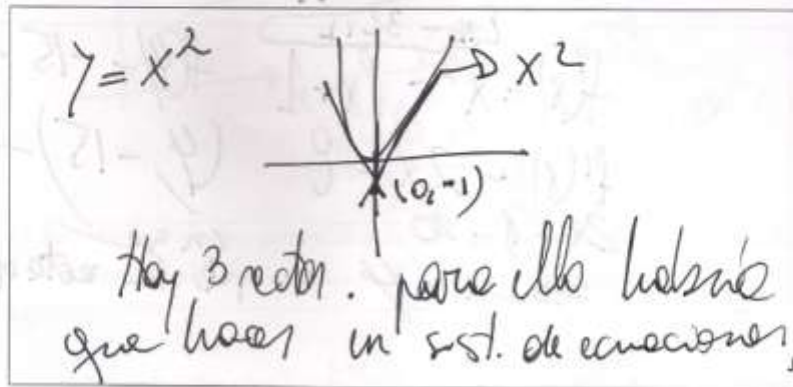 y = x²
x²
(0, -1)
Hay 3 rectas. para ello habría
que hacer un sist. de ecuaciones.